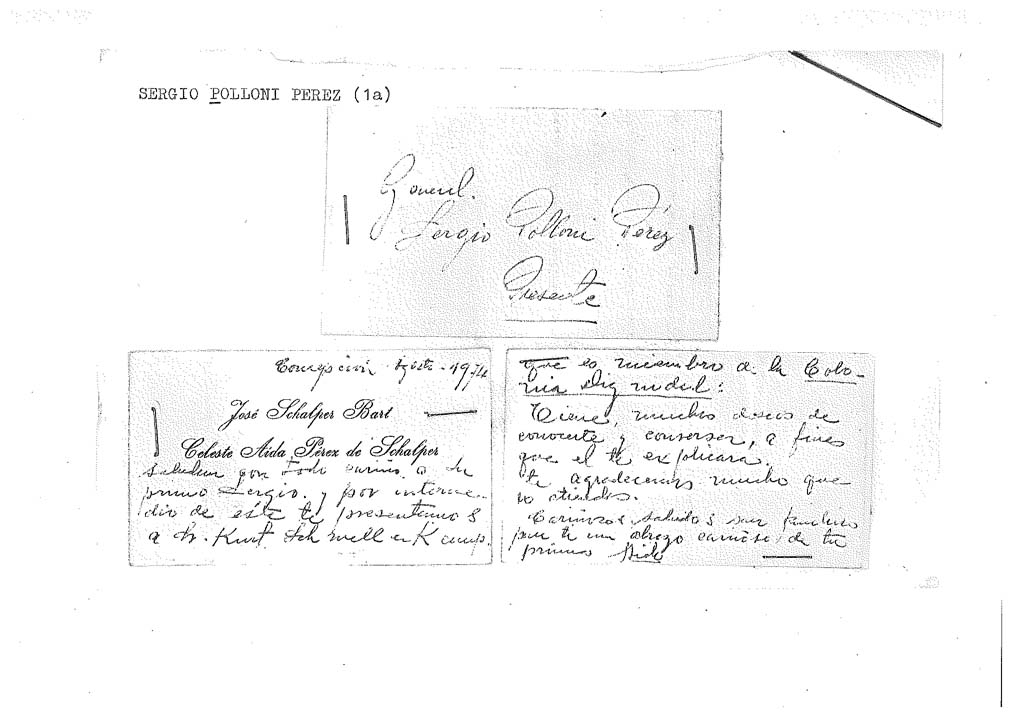 SERGIO POLLONI PEREZ (1a)
General.
Sergio Polloni Pérez
Presente
Concepción Agosto - 1974
José Schalper Bart
Celeste Aída Pérez de Schalper
saludan con todo cariño a su
primo Sergio. y por interme-
dio de este te presentamos
a Sr. Kurt Schnellenkamp.
que es miembro de la Colo-
nia Dignidad:
Tiene, muchos deseos de
conocerte y conversar, a fines
que el te explicará.
te agradecemos mucho que
lo atiendas.
Cariñosos saludos
por ti un abrazo cariñoso de tu
prima Aída